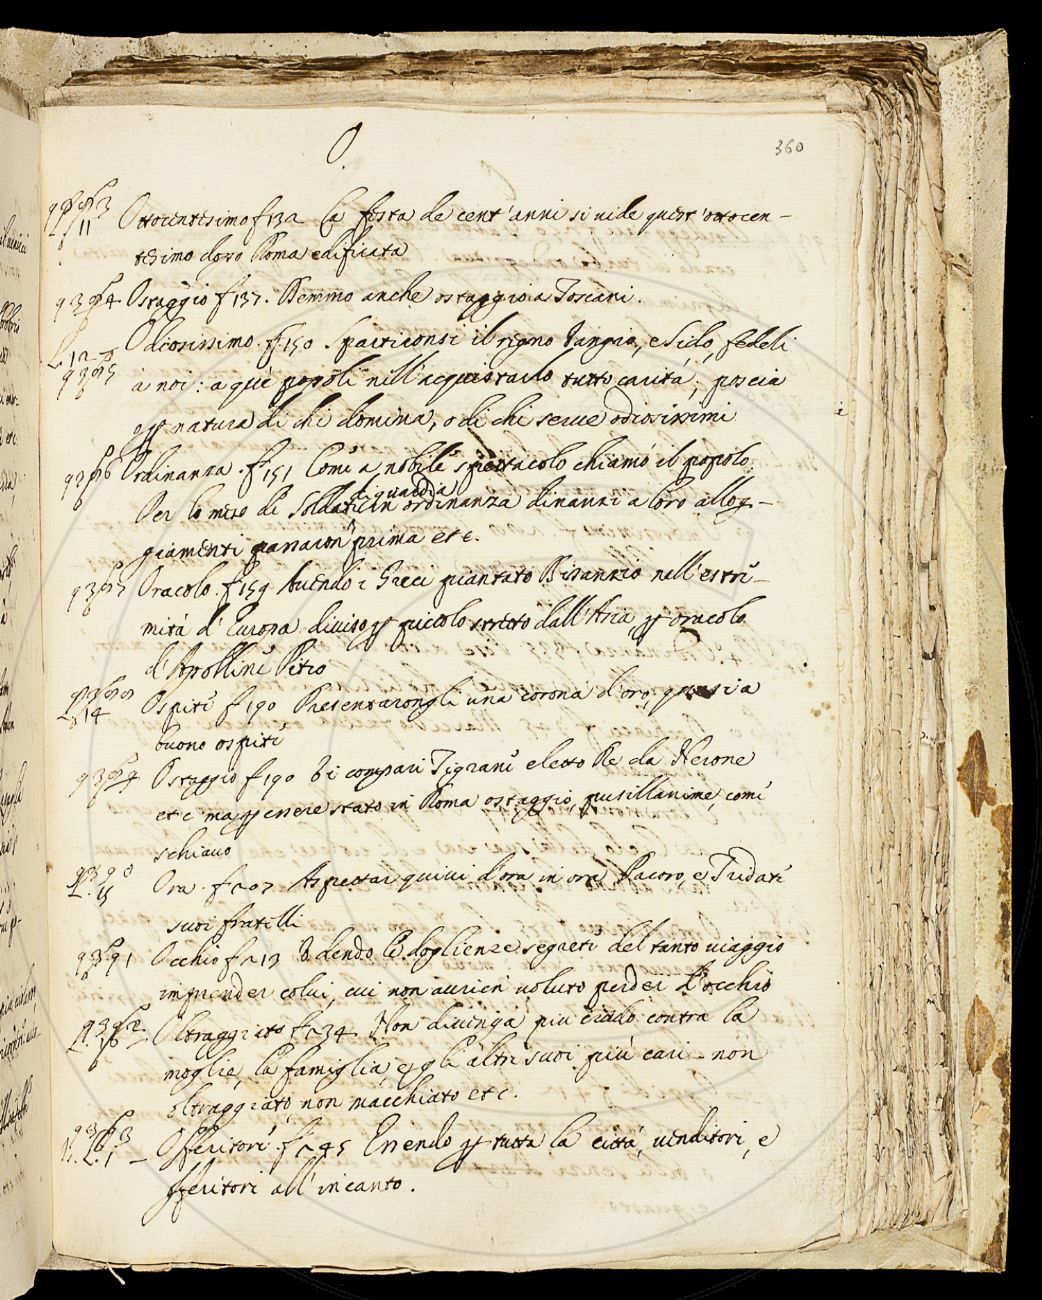 O.
360
Ottocentesimo f 132 La festa de cent'anni si vide quest'ottocen-
tesimo dopo Roma edificata
Ostaggio f 137. Demmo anche ostaggi a Toscani.
Odiosissimo. f 150 Spartironsi il regno Vangio, e Sido, fedeli
à noi: a què popoli nell'acquistarlo tutto carità; poscia
natura di chi domina, o di chi serve odiosissimi
Ordinanza. f 151 Come a nobile spettacolo chiamò il popolo
di guardia
Per lo mezo di soldati in ordinanza dinanzi a loro allog-
giamenti prima etc.
Oracolo. f 159 Avendo i Greci piantato Bisanzio nell'estre-
mità d'Europa diviso piccolo stretto dall'Asia, oracolo
d'Apolline Pitio
Ospite f 190 Presentarongli una corona d'oro, quasi a
buono ospite
Ostaggio f 190 Vi compari Tigrane eletto Re da Nerone
etc ma essere stato in Roma ostaggio, pusillanime, come
schiavo
Ora. f 207 Aspettar quivi d'ora in ora Pacoro, e Tridate
suoi fratelli
Occhio f 213 Udendo le doglienze segrete del tanto viaggio
imprender colui, cui non aurien voluto perder d'occhio
Oltraggiato f 234 Non divenga più crudo contra la
moglie, la famiglia, e gli altri suoi più cari non
oltraggiato non macchiato etc.
Offeritore. f 245 Essendo tutta la città, venditori, e
offeritori all'incanto.